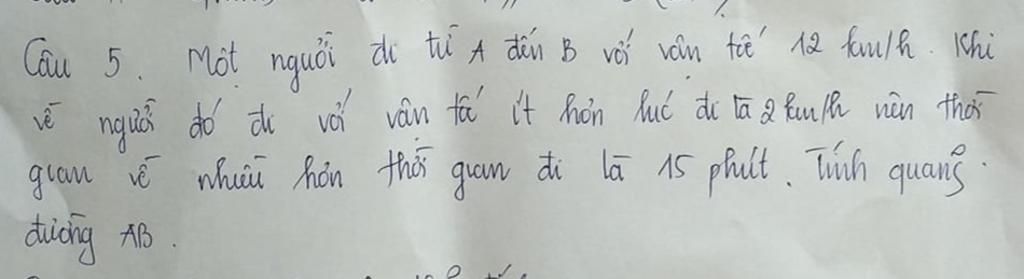 Câu 5. Một người đi từ A đến B với vân tốc 12 km/h. Khi
về người đó đi với vân tốc ít hơn lúc đi là 2 km/h nên thời
gian về nhiều hơn thời gian đi là 15 phút. Tính quãng
đường AB.